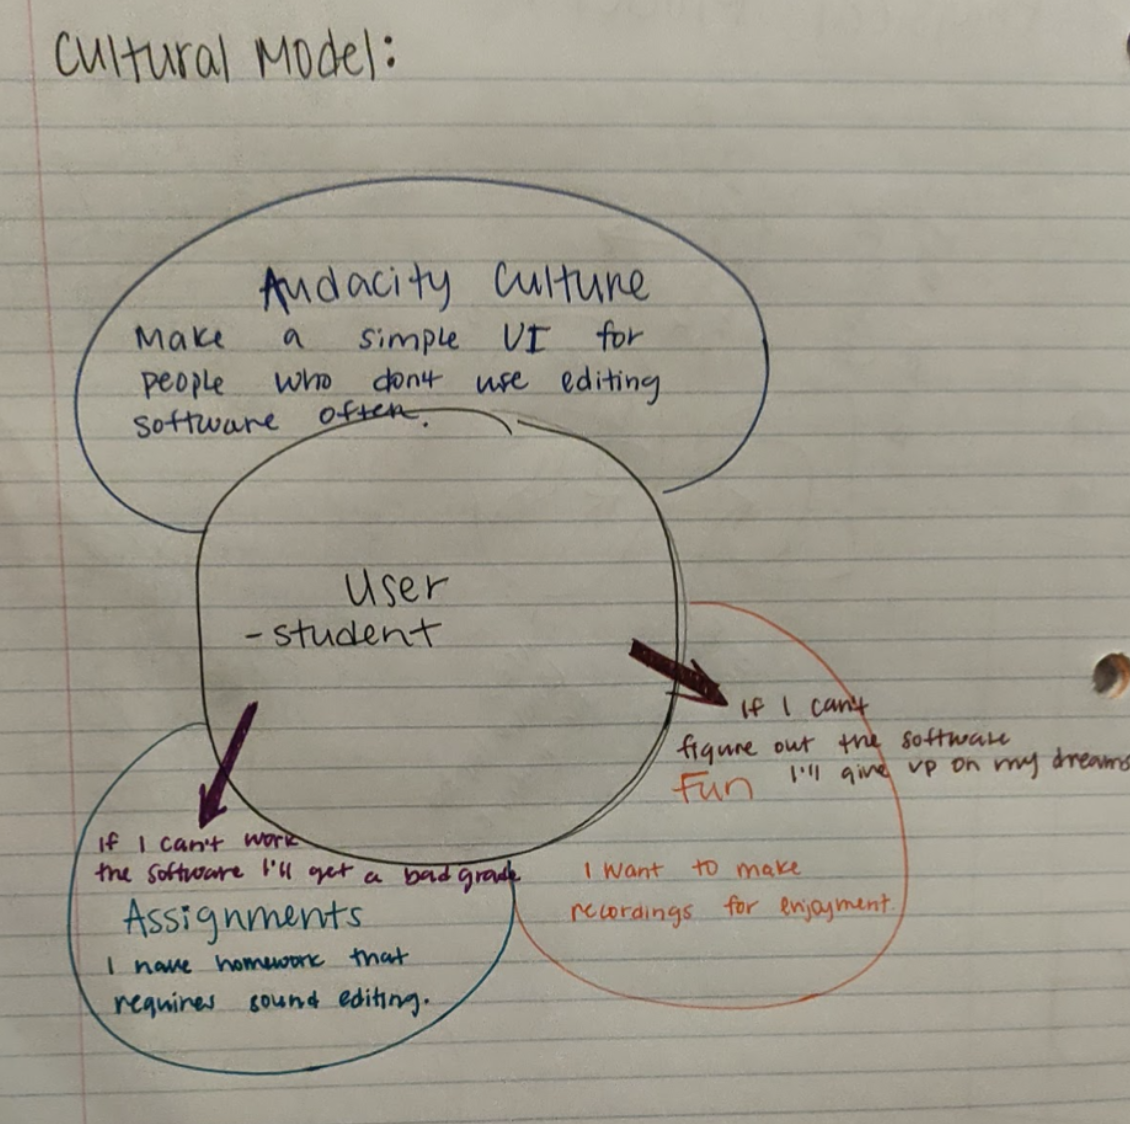 Cultural Model:
Audacity Culture
Make a simple UI for
people who don't use editing
software often.
User
-student
If I can't
figure out the software
I'll give up on my dreams
Fun
I want to make
recordings for enjoyment.
If I can't work
the software I'll get a bad grade
Assignments
I have homework that
requires sound editing.